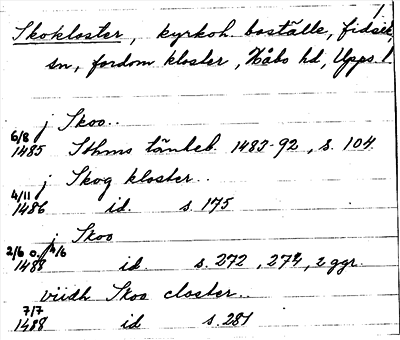 1
Skokloster, kyrkoh. boställe, fideik.
sn, fordom kloster, Håbo hd, Upps. l.
j Skoo..
6/8
1485 Sthms tänkeb. 1483-92, s. 104.
j Skog kloster..
4/11
1486 id. s. 175
j Skoo
2/6 o. 4/6
1488 id. s. 272, 274, 2 ggr.
viidh Skoo closter..
7/7
1488 id s. 281